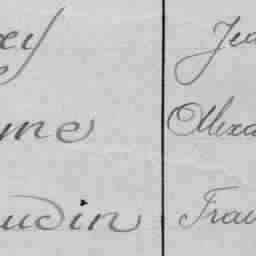 ey Jea
me Alexa
udin Fran